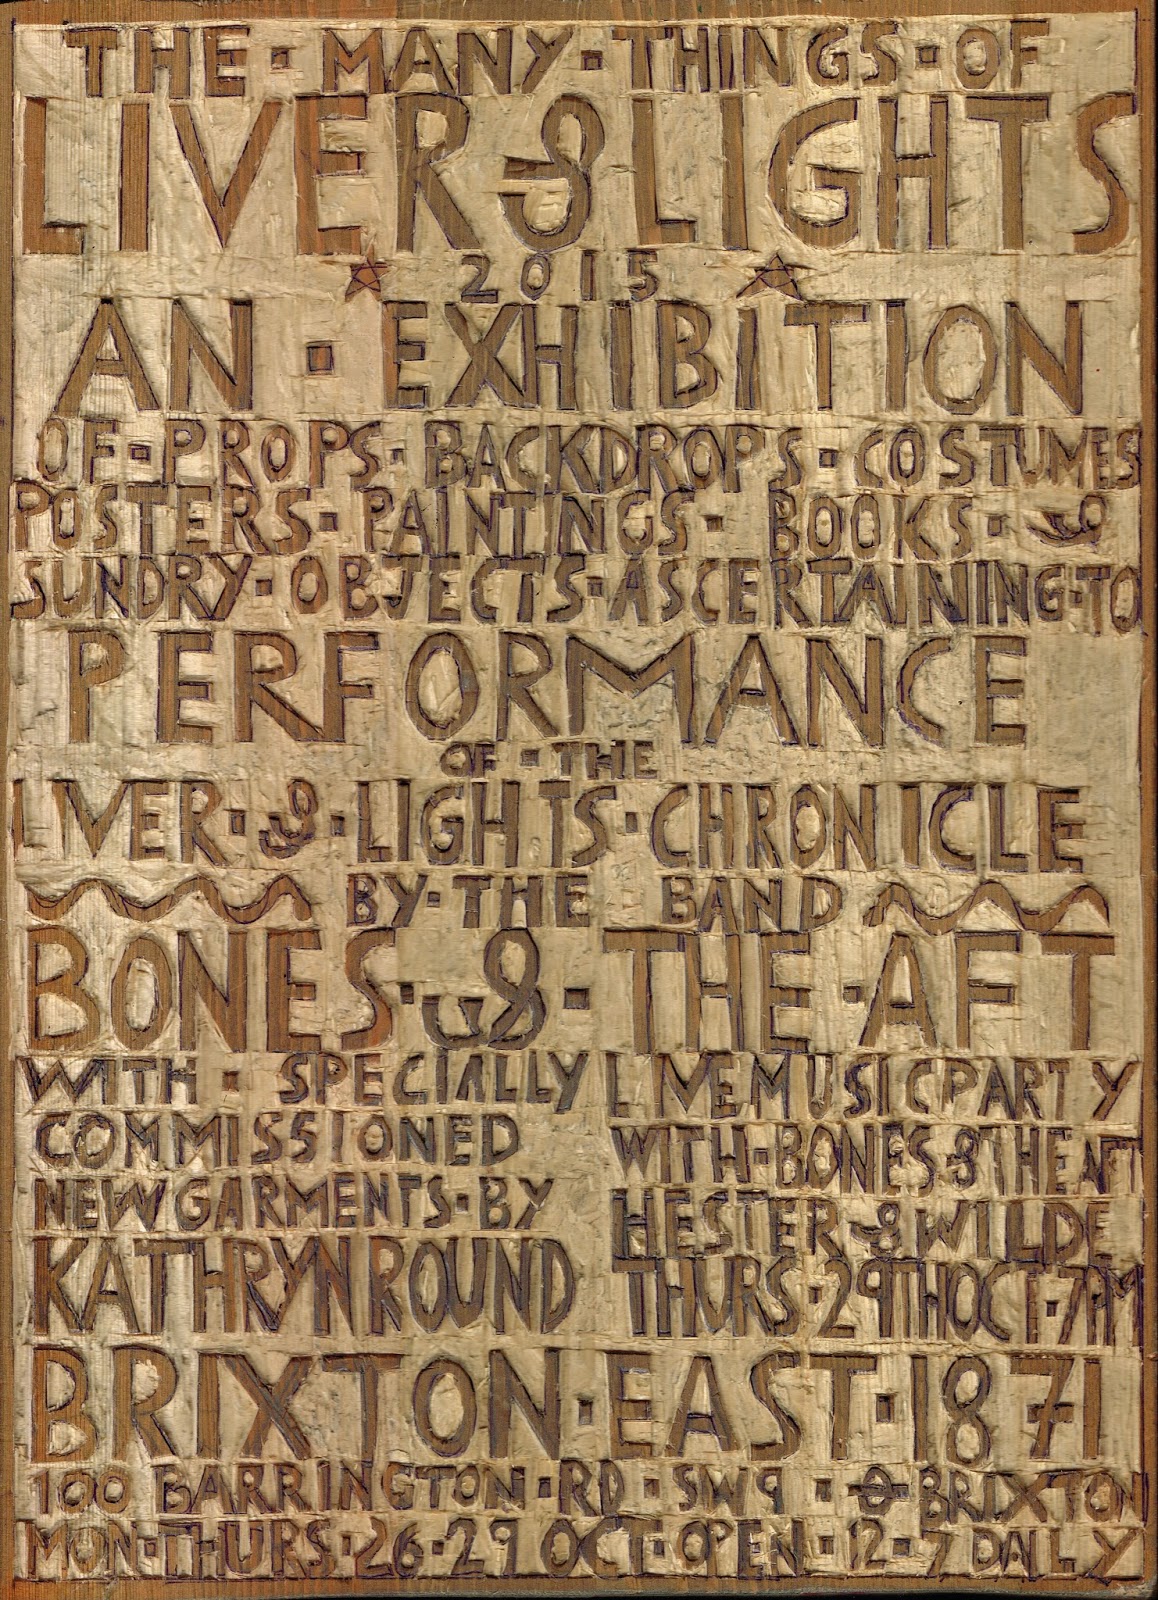 THE · MANY · THINGS · OF
LIVER & LIGHTS
2015
AN · EXHIBITION
OF · PROPS · BACKDROPS · COSTUMES
POSTERS · PAINTINGS · BOOKS · &
SUNDRY · OBJECTS · ASCERTAINING · TO
PERFORMANCE
OF · THE
LIVER · & · LIGHTS · CHRONICLE
BY · THE BAND
BONES · & · THE · AFT
WITH · SPECIALLY
COMMISSIONED
NEW GARMENTS · BY
KATHRYN ROUND
LIVE MUSIC PARTY
WITH · BONES & THE AFT
HESTER & WILDE
THURS · 29TH OCT · 7PM
BRIXTON · EAST · 1871
100 BARRINGTON · RD · SW9 · BRIXTON
MON · THURS · 26 · 29 OCT · OPEN · 12 · 7 DAILY